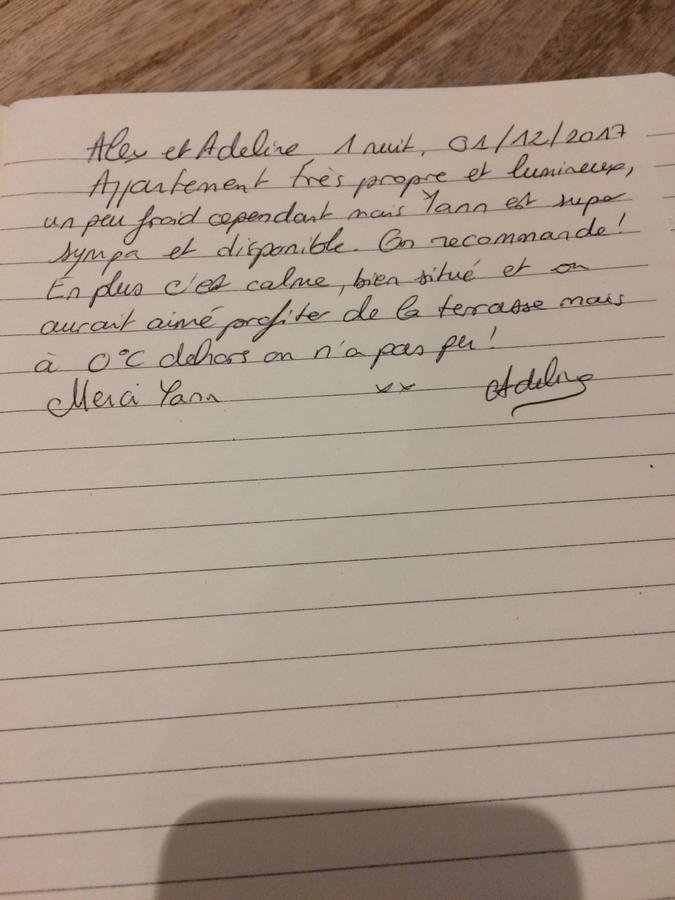 Alex et Adeline 1 nuit, 01/12/2017
Appartement très propre et lumineux,
un peu froid cependant mais Yann est super
sympa et disponible. On recommande!
En plus c'est calme, bien situé et on
aurait aimé profiter de la terrasse mais
à 0°C dehors on n'a pas pu!
Merci Yann xx Adeline